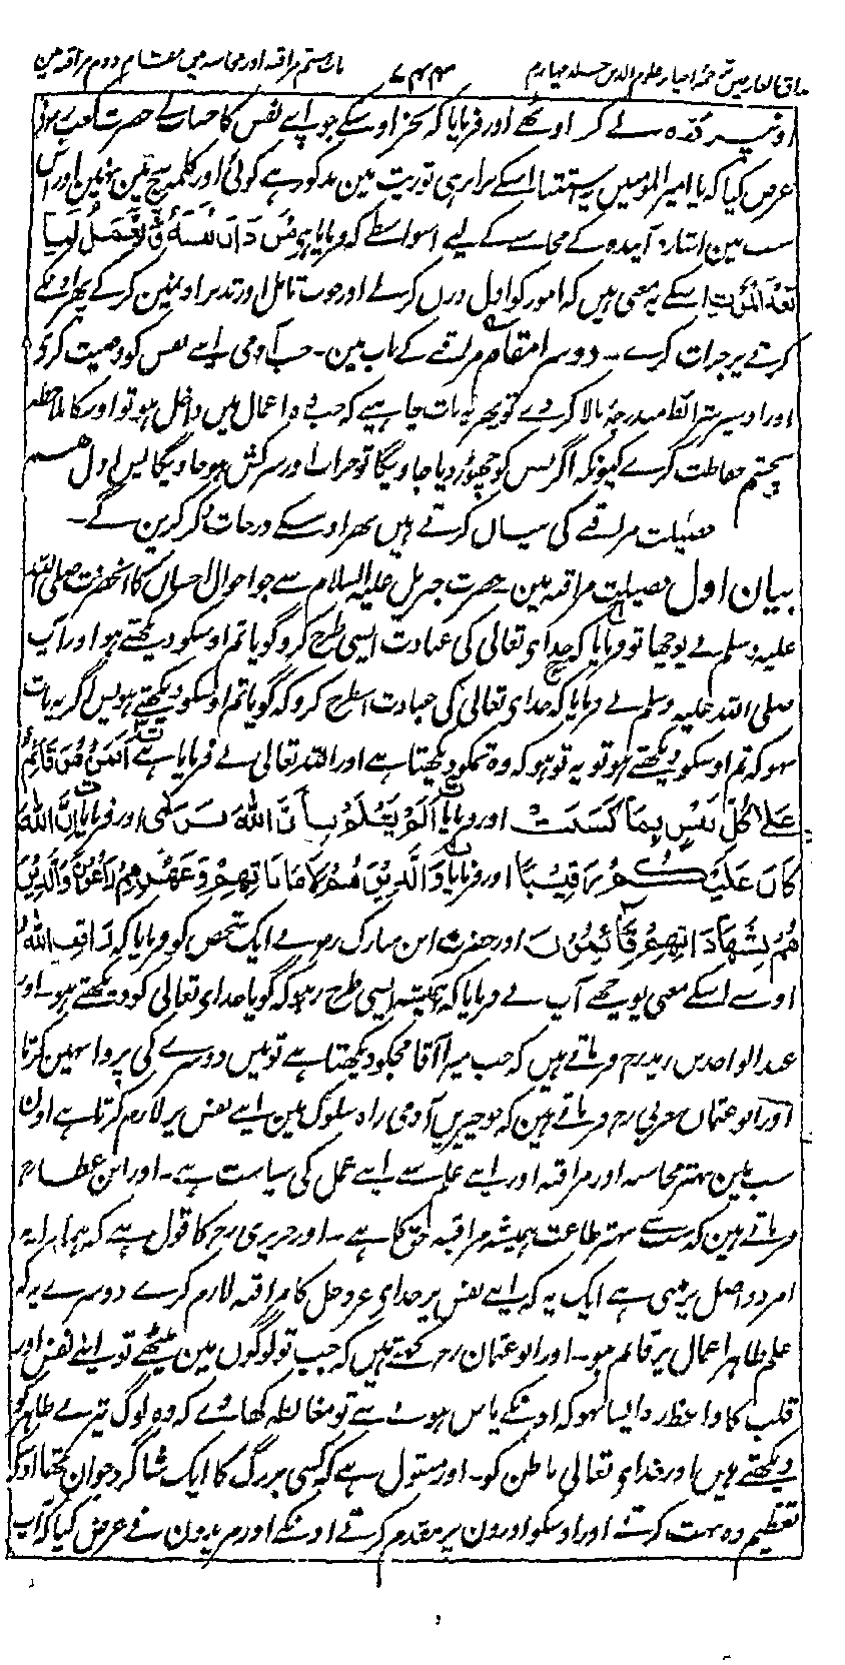 مذاق العارفین ترجمۂ احیاء علوم الدین جلد چہارم ۷۴۴ باب ہشتم مراقبہ اور محاسبہ میں مقام دوم مراقبہ مین
اونپر درہ لے کر اوٹھے اور فرمایا کہ بجز اوسکے جو اپنے نفس کا حساب لے حضرت کعب رض نے
عرض کیا کہ یا امیر المومنین یہ استثنا اسکے برابر ہی توریت مین مذکور ہے کوئی اور کلمہ بیچ مین نہین اور اس
سب مین اشارہ آیندہ کے محاسبے کے لیے اسواسطے کہ فرمایا ہی مَنْ دَانَ نَفْسَهُ وَ يَعْمَلُ لِمَا
بَعْدَ الْمَوْتِ اسکے یہ معنی ہیں کہ امور کو اول وزن کرلے اور خوب تامل اور تدبر اونمین کرکے پھر اونکے
کرنے پر جرات کرے ۔ دوسرا مقام مراقبے کے باب مین ۔ جب آدمی اپنے نفس کو وصیت کردے
اور اوسپر شرائط مندرجۂ بالا کردے تو پھر یہ بات چاہیے کہ جب وہ اعمال میں داخل ہو تو اوسکا ملاحظہ
بچشم حفاظت کرے کیونکہ اگر نفس کو چھوڑ دیا جاویگا تو خراب اور سرکش ہو جاویگا پس اول ہم
فضیلت مراقبے کی بیان کرتے ہیں پھر اوسکے درجات ذکر کرین گے ۔
بیان اول فضیلت مراقبہ مین ۔ حضرت جبریل علیہ السلام نے جو احوال احسان کا آنحضرت صلی اللہ
علیہ وسلم سے پوچھا تو فرمایا کہ خدای تعالی کی عبادت ایسی طرح کرو گویا تم اوسکو دیکھتے ہو اور آپ
صلی اللہ علیہ وسلم نے فرمایا کہ خدای تعالی کی عبادت اسطرح کرو کہ گویا تم اوسکو دیکھتے ہو پس اگر یہ بات
نہو کہ تم اوسکو دیکھتے ہو تو یہ تو ہو کہ وہ تمکو دیکھتا ہے اور اللہ تعالی نے فرمایا ہے اَفَمَنْ هُوَ قَائِمٌ
عَلٰى كُلِّ نَفْسٍ بِمَا كَسَبَتْ اور فرمایا اَلَمْ يَعْلَمْ بِاَنَّ اللّٰهَ يَرٰى اور فرمایا اِنَّ اللّٰهَ
كَانَ عَلَيْكُمْ رَقِيْبًا اور فرمایا وَالَّذِيْنَ هُمْ لِاَمَانَاتِهِمْ وَعَهْدِهِمْ رَاعُوْنَ وَالَّذِيْنَ
هُمْ بِشَهَادَاتِهِمْ قَائِمُوْنَ اور حضرت ابن مبارک رح نے ایک شخص کو فرمایا کہ رَاقِبِ اللّٰهَ
اوسنے اسکے معنی پوچھے آپ نے فرمایا کہ ہمیشہ ایسی طرح رہو کہ گویا خدای تعالی کو دیکھتے ہو اور
عبد الواحد بن زید رح فرماتے ہیں کہ جب میرا آقا مجکو دیکھتا ہے تو میں دوسرے کی پروا نہین کرتا
اور ابو عثمان مغربی رح فرماتے ہین کہ جو چیزیں آدمی راہ سلوک مین اپنے نفس پر لازم کرتا ہے اون
سب مین بہتر محاسبہ اور مراقبہ اور اپنے علم سے اپنے عمل کی سیاست ہے ۔ اور ابن عطا رح
فرماتے ہین کہ سب سے بہتر طاعت ہمیشہ مراقبہ حق کا ہے ۔ اور جریری رح کا قول ہے کہ ہمارا یہ
امر دو اصل پر مبنی ہے ایک یہ کہ اپنے نفس پر خدای عز وجل کا مراقبہ لازم کرے دوسرے یہ کہ
علم ظاہر اعمال پر قائم ہو ۔ اور ابو عثمان رح کہتے ہیں کہ جب تو لوگوں مین بیٹھے تو اپنے نفس اور
قلب کا واعظ رہ ایسا نہو کہ اونکے پاس ہونے سے تو مغالطہ کھاوے کہ وہ لوگ تیرے ظاہر کو
دیکھتے ہیں اور خدای تعالی باطن کو ۔ اور منقول ہے کہ کسی بزرگ کا ایک شاگرد جوان تھا اوسکی
تعظیم وہ بہت کرتے اور اوسکو اورون پر مقدم کرتے اونکے اور مریدون نے عرض کیا کہ آپ